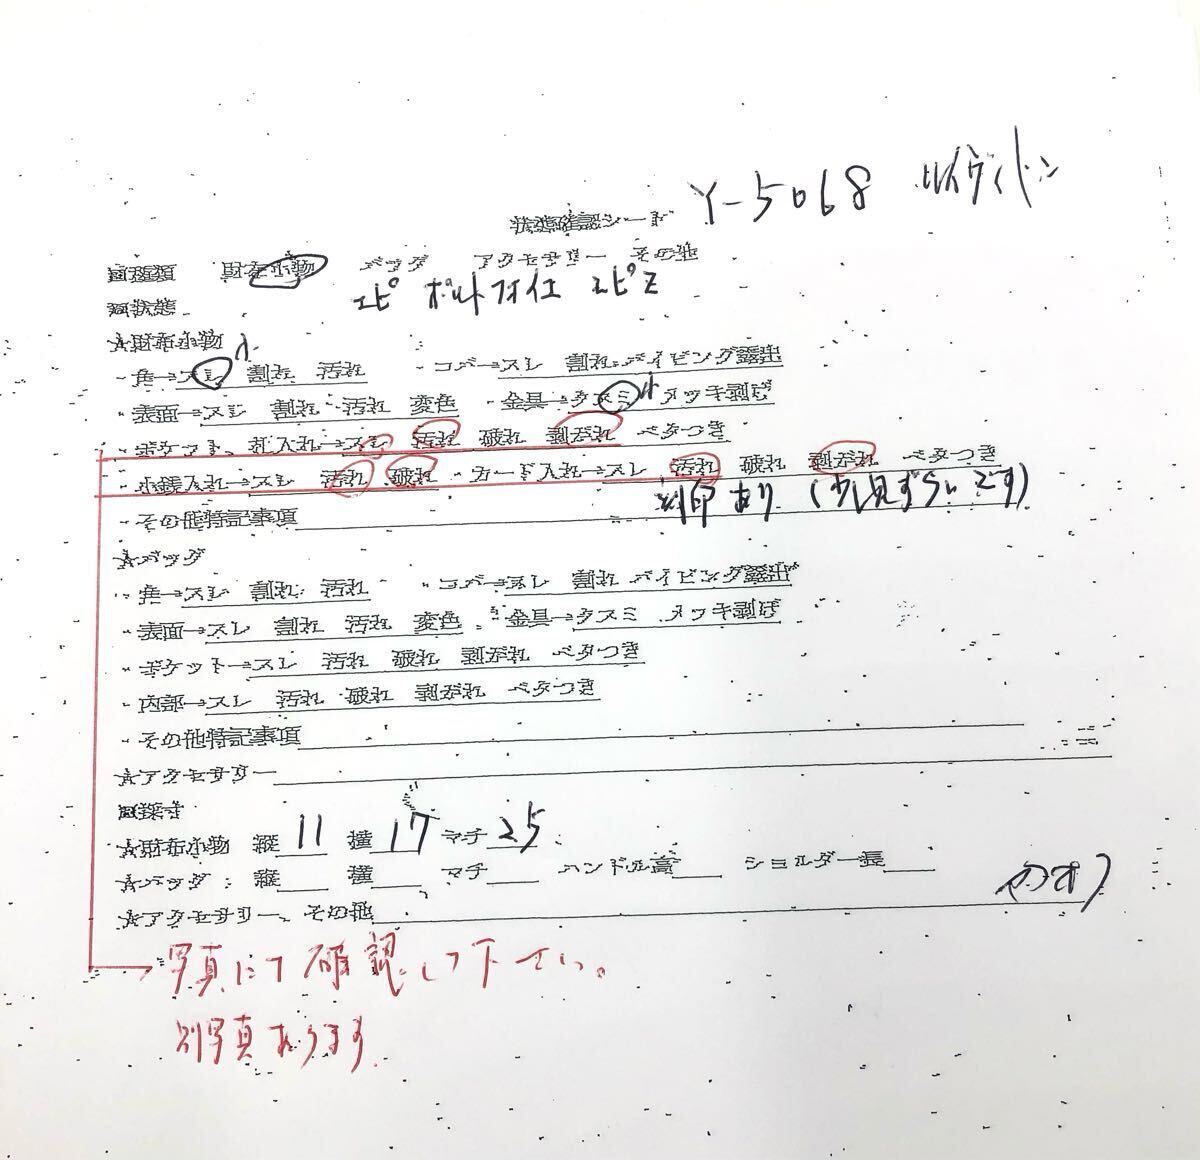 Y-5068 ルイヴィトン
状態確認シート
種類 財布小物 バッグ アクセサリー その他
状態 エピ ポルトフォイユ エピZ
★財布小物 小
・角→スレ 割れ 汚れ ・コバ→スレ 割れ パイピング露出
・表面→スレ 割れ 汚れ 変色 ・金具→クスミ 小 メッキ剥げ
・ポケット、札入れ→スレ 汚れ 破れ 剥がれ ベタつき
・小銭入れ→スレ 汚れ 破れ ・カード入れ→スレ 汚れ 破れ 剥がれ ベタつき
・その他特記事項 刻印あり (少し見ずらいです)
★バッグ
・角→スレ 割れ 汚れ ・コバ→スレ 割れ パイピング露出
・表面→スレ 割れ 汚れ 変色 ・金具→クスミ メッキ剥げ
・ポケット→スレ 汚れ 破れ 剥がれ ベタつき
・内部→スレ 汚れ 破れ 剥がれ ベタつき
・その他特記事項
★アクセサリー
採寸
★財布小物 縦 11 横 17 マチ 2.5
★バッグ:縦 横 マチ ハンドル高 ショルダー長
★アクセサリー、その他
写真にて確認して下さい。
別写真あります